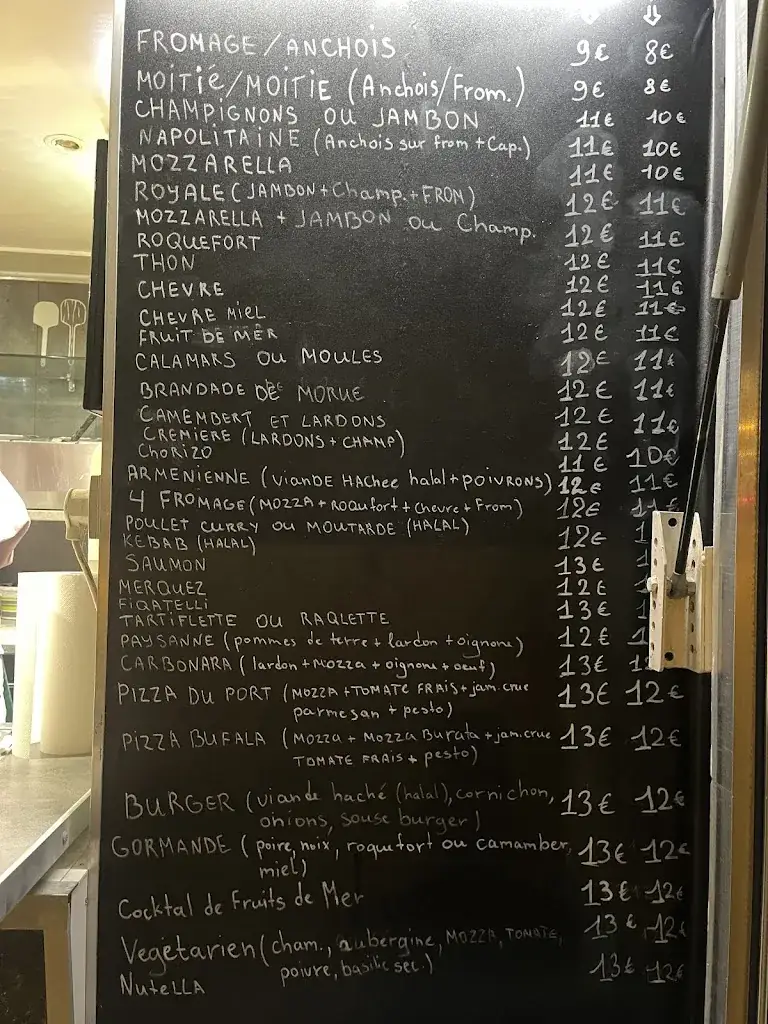 FROMAGE/ANCHOIS 9€ 8€
MOITIÉ/MOITIE (Anchois/From.) 9€ 8€
CHAMPIGNONS OU JAMBON 11€ 10€
NAPOLITAINE (Anchois sur from + Cap.) 11€ 10€
MOZZARELLA 11€ 10€
ROYALE (JAMBON + Champ. + FROM) 12€ 11€
MOZZARELLA + JAMBON ou Champ. 12€ 11€
ROQUEFORT 12€ 11€
THON 12€ 11€
CHEVRE 12€ 11€
CHEVRE MIEL 12€ 11€
FRUIT DE MER 12€ 11€
CALAMARS OU MOULES 12€ 11€
BRANDADE DE MORUE 12€ 11€
CAMEMBERT ET LARDONS 12€ 11€
CREMIERE (LARDONS + CHAMP) 12€
CHORIZO 11€ 10€
ARMENIENNE (VIANDE HACHEE halal + POIVRONS) 12€ 11€
4 FROMAGE (MOZZA + Roqufort + Chevre + From) 12€
POULET CURRY OU MOUTARDE (HALAL) 12€
KEBAB (HALAL)
SAUMON 13€
MERQUEZ 12€
FIGATELLI 13€
TARTIFLETTE OU RAQLETTE
PAYSANNE (pommes de terre + lardon + oignone) 12€
CARBONARA (lardon + Mozza + oignone + oeuf) 13€
PIZZA DU PORT (MOZZA + TOMATE FRAIS + jam. crue 13€ 12€
parmesan + pesto)
PIZZA BUFALA (Mozza + Mozza Burata + jam. crue 13€ 12€
TOMATE FRAIS + pesto)
BURGER (viande haché (halal), cornichon, 13€ 12€
onions, souse burger)
GORMANDE (poire, noix, roquefort ou camamber, 13€ 12€
miel)
Cocktal de Fruits de Mer 13€ 12€
Vegétarien (cham., aubergine, MOZZA, TOMATE, 13€ 12€
poivre, basilic sec.)
NUTELLA 13€ 12€